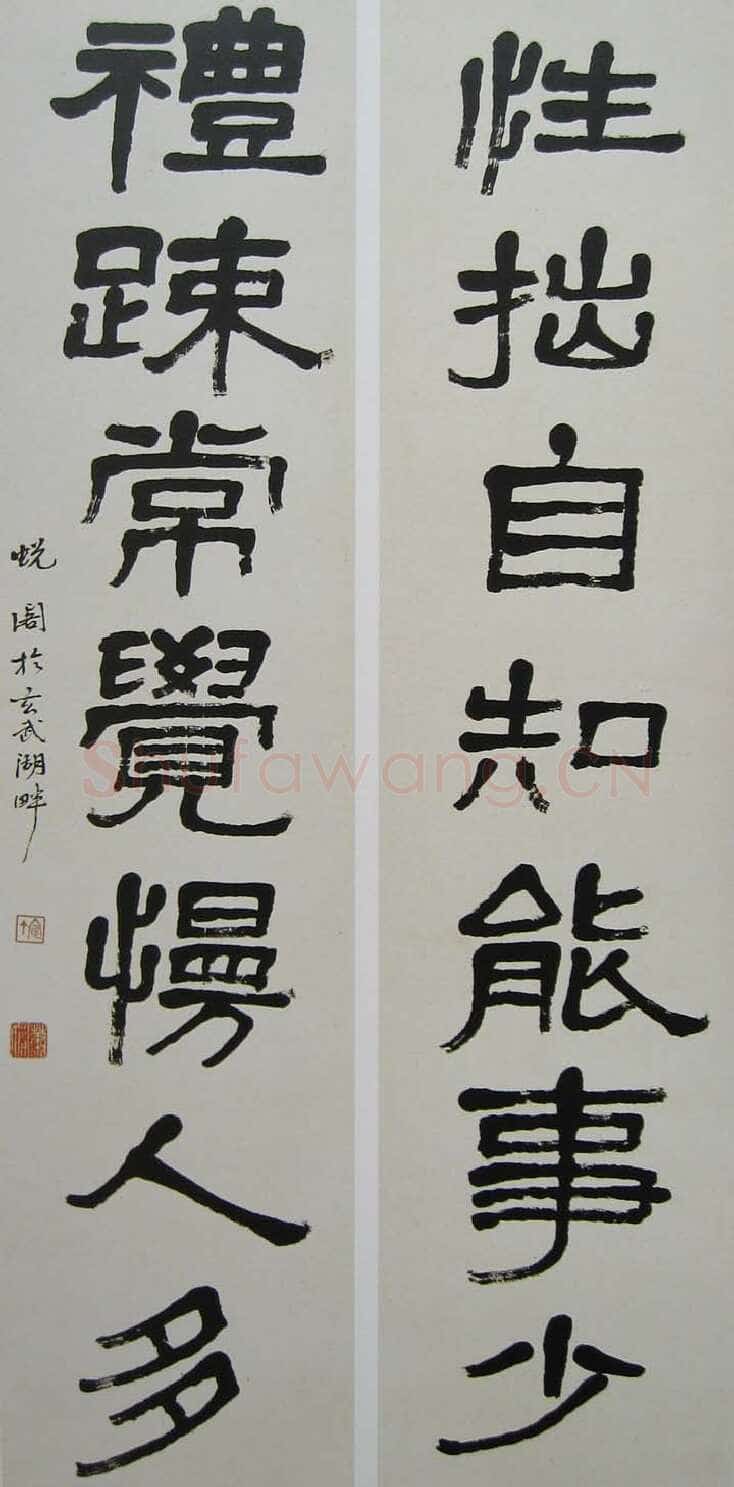 性拙自知能事少
禮踈常覺慢人多
蜕闇於玄武湖畔
Shufawang.CN